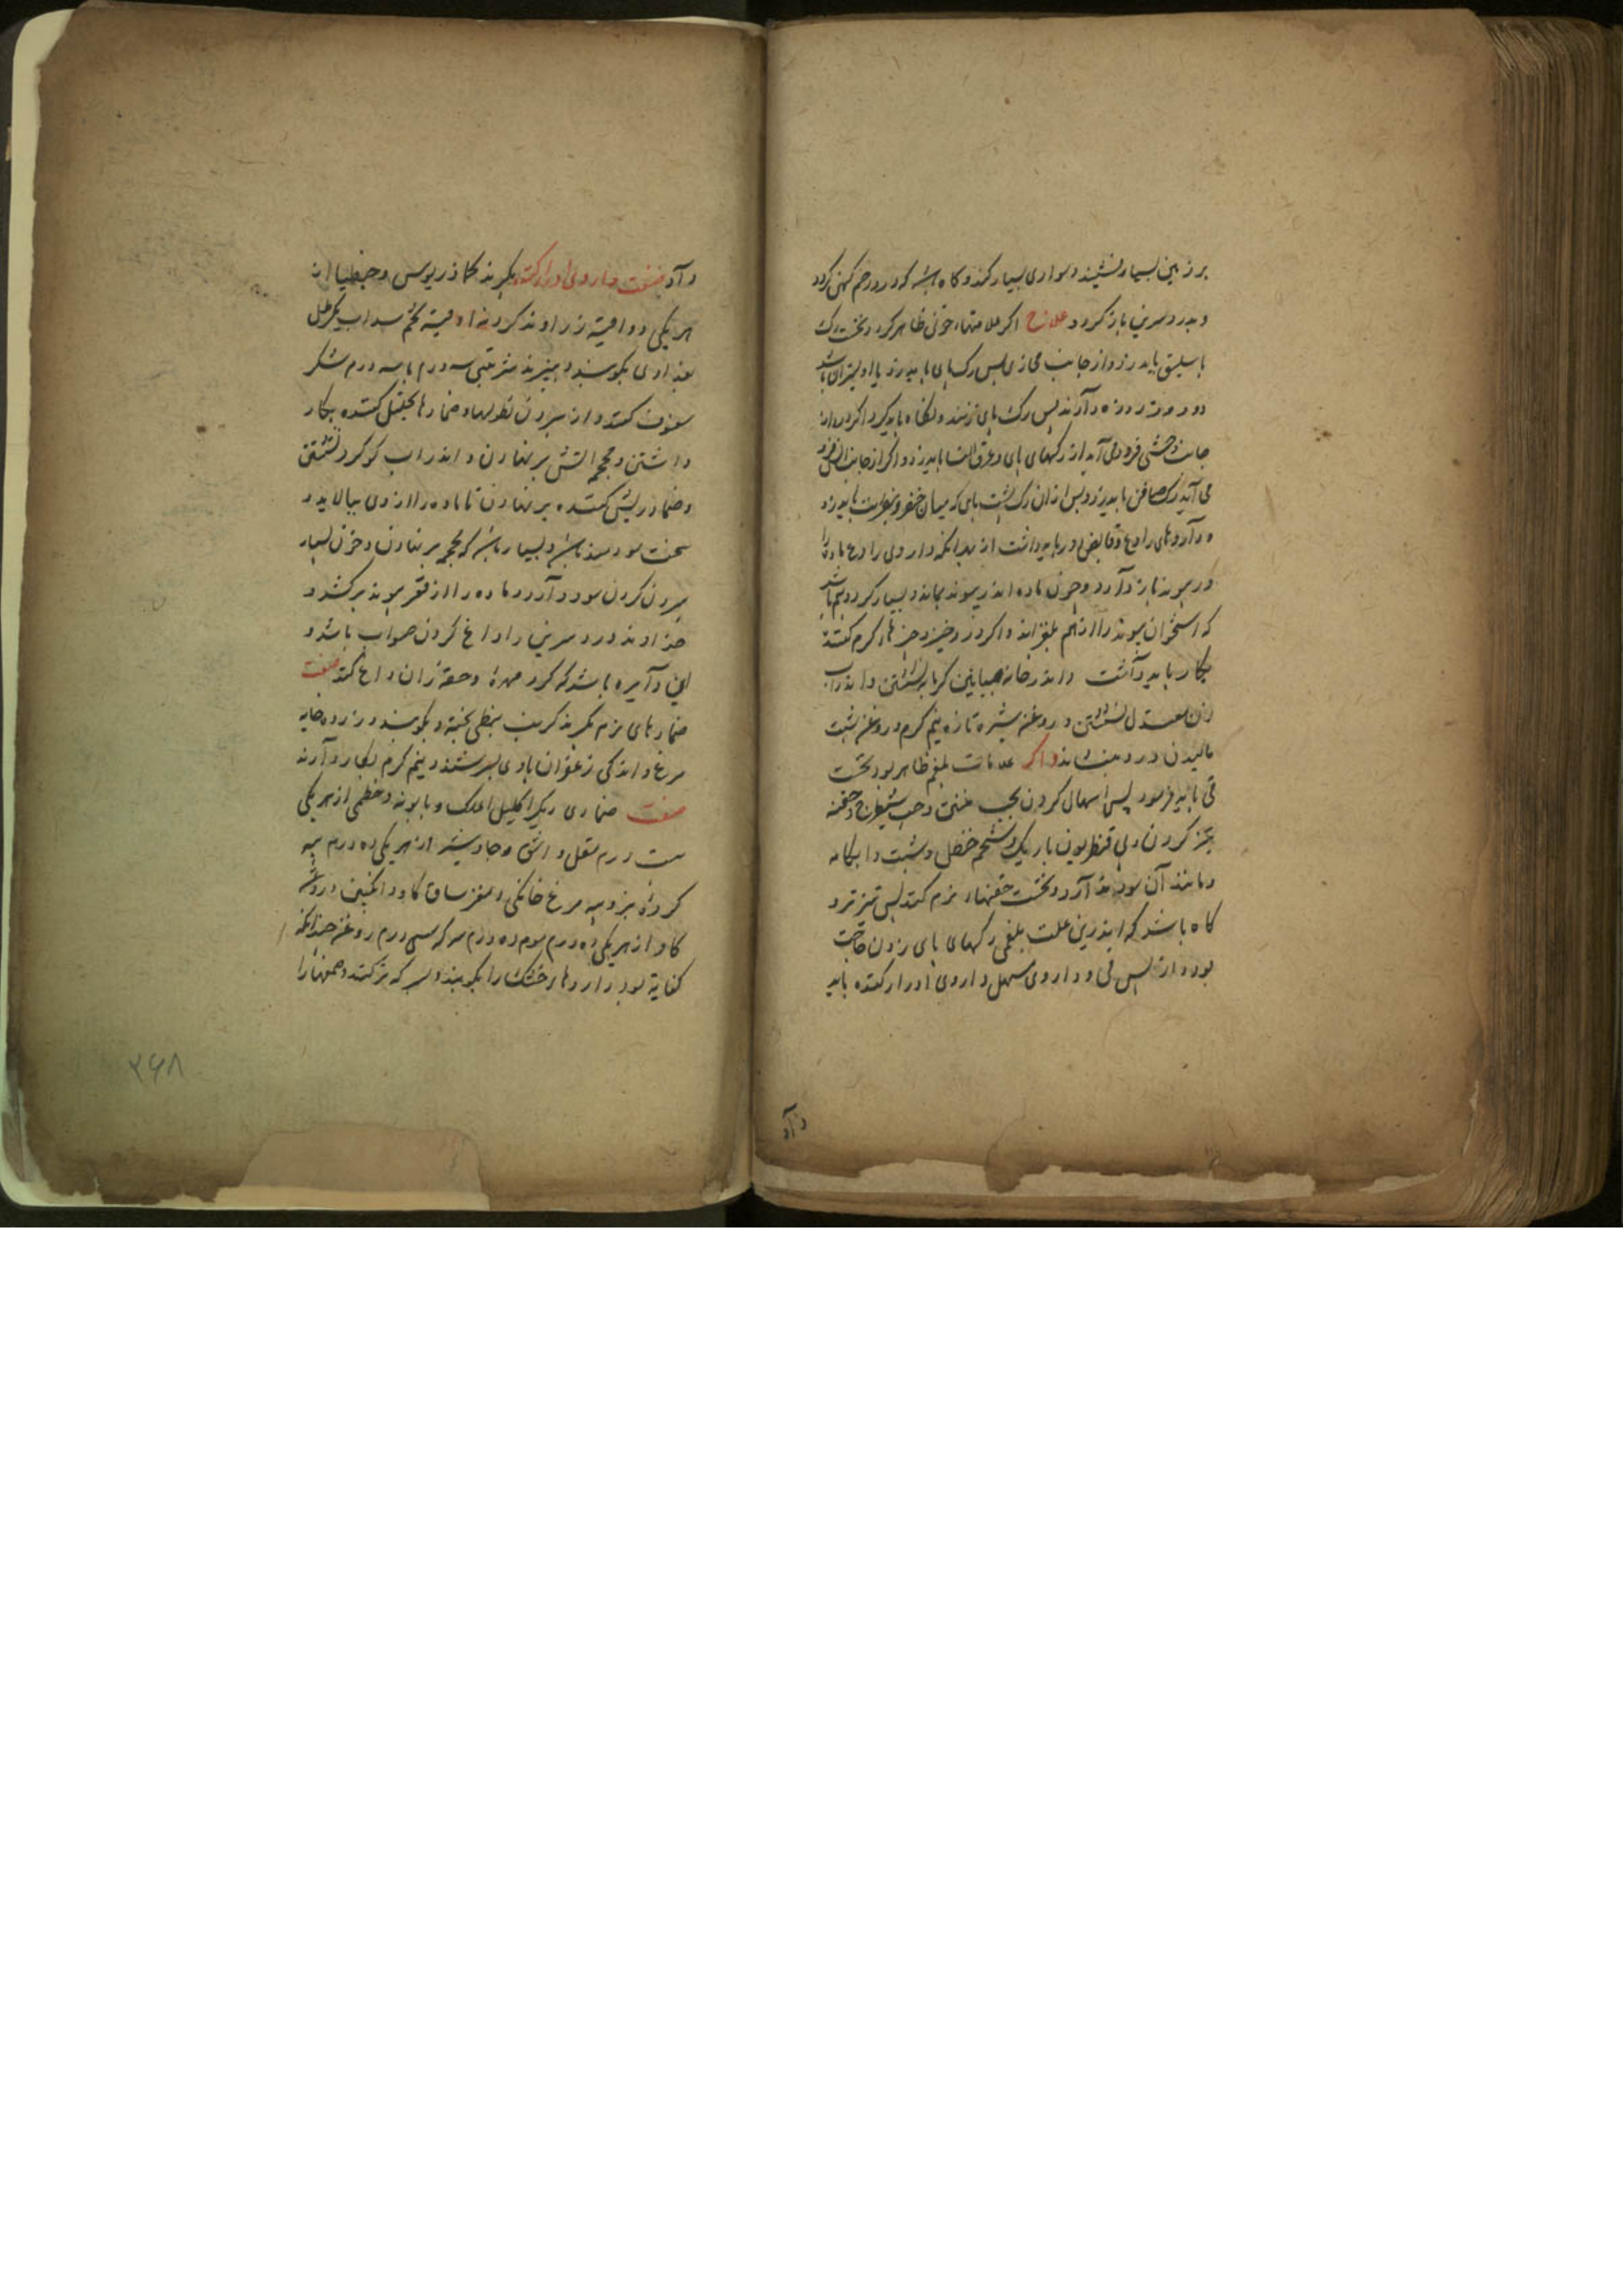 بر زمین بسیار نشیند و سواری بسیار کند و کاه باشد که درد رحم کهن کردد
و بدرد سرین باز کردد علاج اکر علامتهاء خونی ظاهر کردد نخست رک
باسلیق باید زد و از جانب محاذی پس رک پای باید زد
دو روز روزه دارند پس رک پای زنند و نکاه باید کرد اکر درد از
جانب وحشی فرود می آید از رکهای پای و عرق النسا باید زد و اکر از جانب انسی فرود
می آید رک صافن باید زد و پس از ان رک پشت پای که میان خنصر و بنصر است باید زد
و داروهای رادع و قابض دور باید داشت از بهر انکه داروی رادع ماده را
در پیوند باز دارد و چون ماده اندر پیوند بماند و بسیار کردد بیم باشد
که استخوان پیوند را از هم بلغزاند و اکر درد خیزد چیزهاء کرم کننده
بکار باید داشت و اندر خانه میانین کرمابه نشستن و اندر آب
زن معتدل نشستن و روغن شیره تازه نیم کرم و روغن شبت
مالیدن درد بنشاند و اکر علامات بلغم ظاهر بود نخست
قی باید فرمود پس اسهال کردن بحب منتن و حب شیطرج و حقنه
تیز کردن و لی قنطریون باریک و شحم حنظل و شبت و ابکامه
و مانند آن سود دارد و نخست حقنهاء نرم کنند پس تیزتر و
کاه باشد که اندرین علت بلغمی رکهای پای زدن حاجت
بود و از پس قی و داروی مسهل داروی ادرار کننده باید
داد
داد صفت داروی ادرار کننده بکیرند کماذریوس و جنطیانا از
هر یکی دو اوقیه زراوند کرد نه اوقیه تخم سداب یک رطل
بکوبند و ببیزند شربتی سه درم با سه درم شکر
سفوف کنند و از بیرون نطولها و ضمادها تحلیل کننده بکار
داشتن و محجمه اتش بر نهادن و اندر اب کوکرد نشستن
و ضماد ریش کننده بر نهادن تا ماده را از وی ببالاید و
سخت سودمند باشد و بسیار باشد که محجمه بر نهادن و خون بسیار
بیرون کردن سود دارد و ماده را از قعر پیوند بر کشد و
خداوند درد سرین را داغ کردن صواب باشد و
این دایره باشد که کرد مهره و حقه ران داغ کنند صفت
ضمادهای نرم بکیرند کرنب نمطی پخته و بکوبند و زرده خایه
مرغ و اندکی زعفران با وی بسرشند و نیم کرم بکار دارند
صفت ضمادی دیکر اکلیل الملک و بابونه و خطمی از هر یکی
بیست درم مقل و اشق و جاوشیر از هر یکی ده درم پیه
کرده بز و پیه مرغ خانکی و مغز ساق کاو و انکبین و روغن
کاو از هر یکی ده درم موم ده درم سرکه سی درم روغن چندانکه
کفایة بود داروهاء خشک را بکوبند و بسرکه تر کنند و صمغها را
۳۶۸